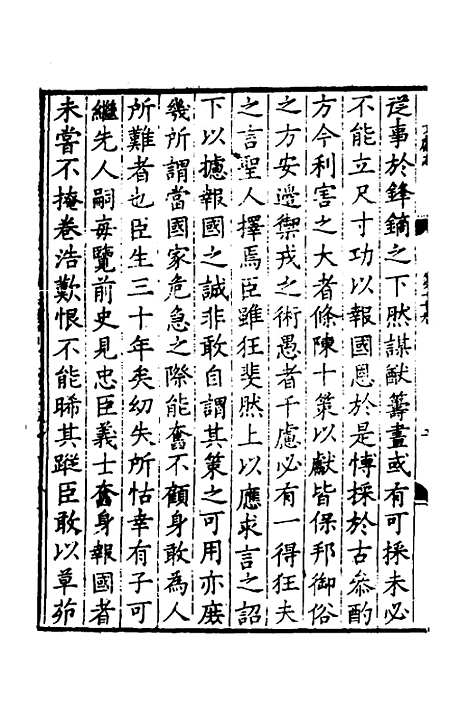 從事於鋒鏑之下然謀猷籌畫或有可採未必
不能立尺寸功以報國恩於是博採於古叅酌
方今利害之大者條陳十策以獻皆保邦御俗
之方安邊禦戎之術愚者千慮必有一得狂夫
之言聖人擇焉臣雖狂斐然上以應求言之詔
下以攄報國之誠非敢自謂其策之可用亦庶
幾所謂當國家危急之際能奮不顧身敢為人
所難者也臣生三十年矣幼失所怙幸有子可
繼先人嗣每覽前史見忠臣義士奮身報國者
未嘗不掩卷浩歎恨不能晞其蹤臣敢以草茆